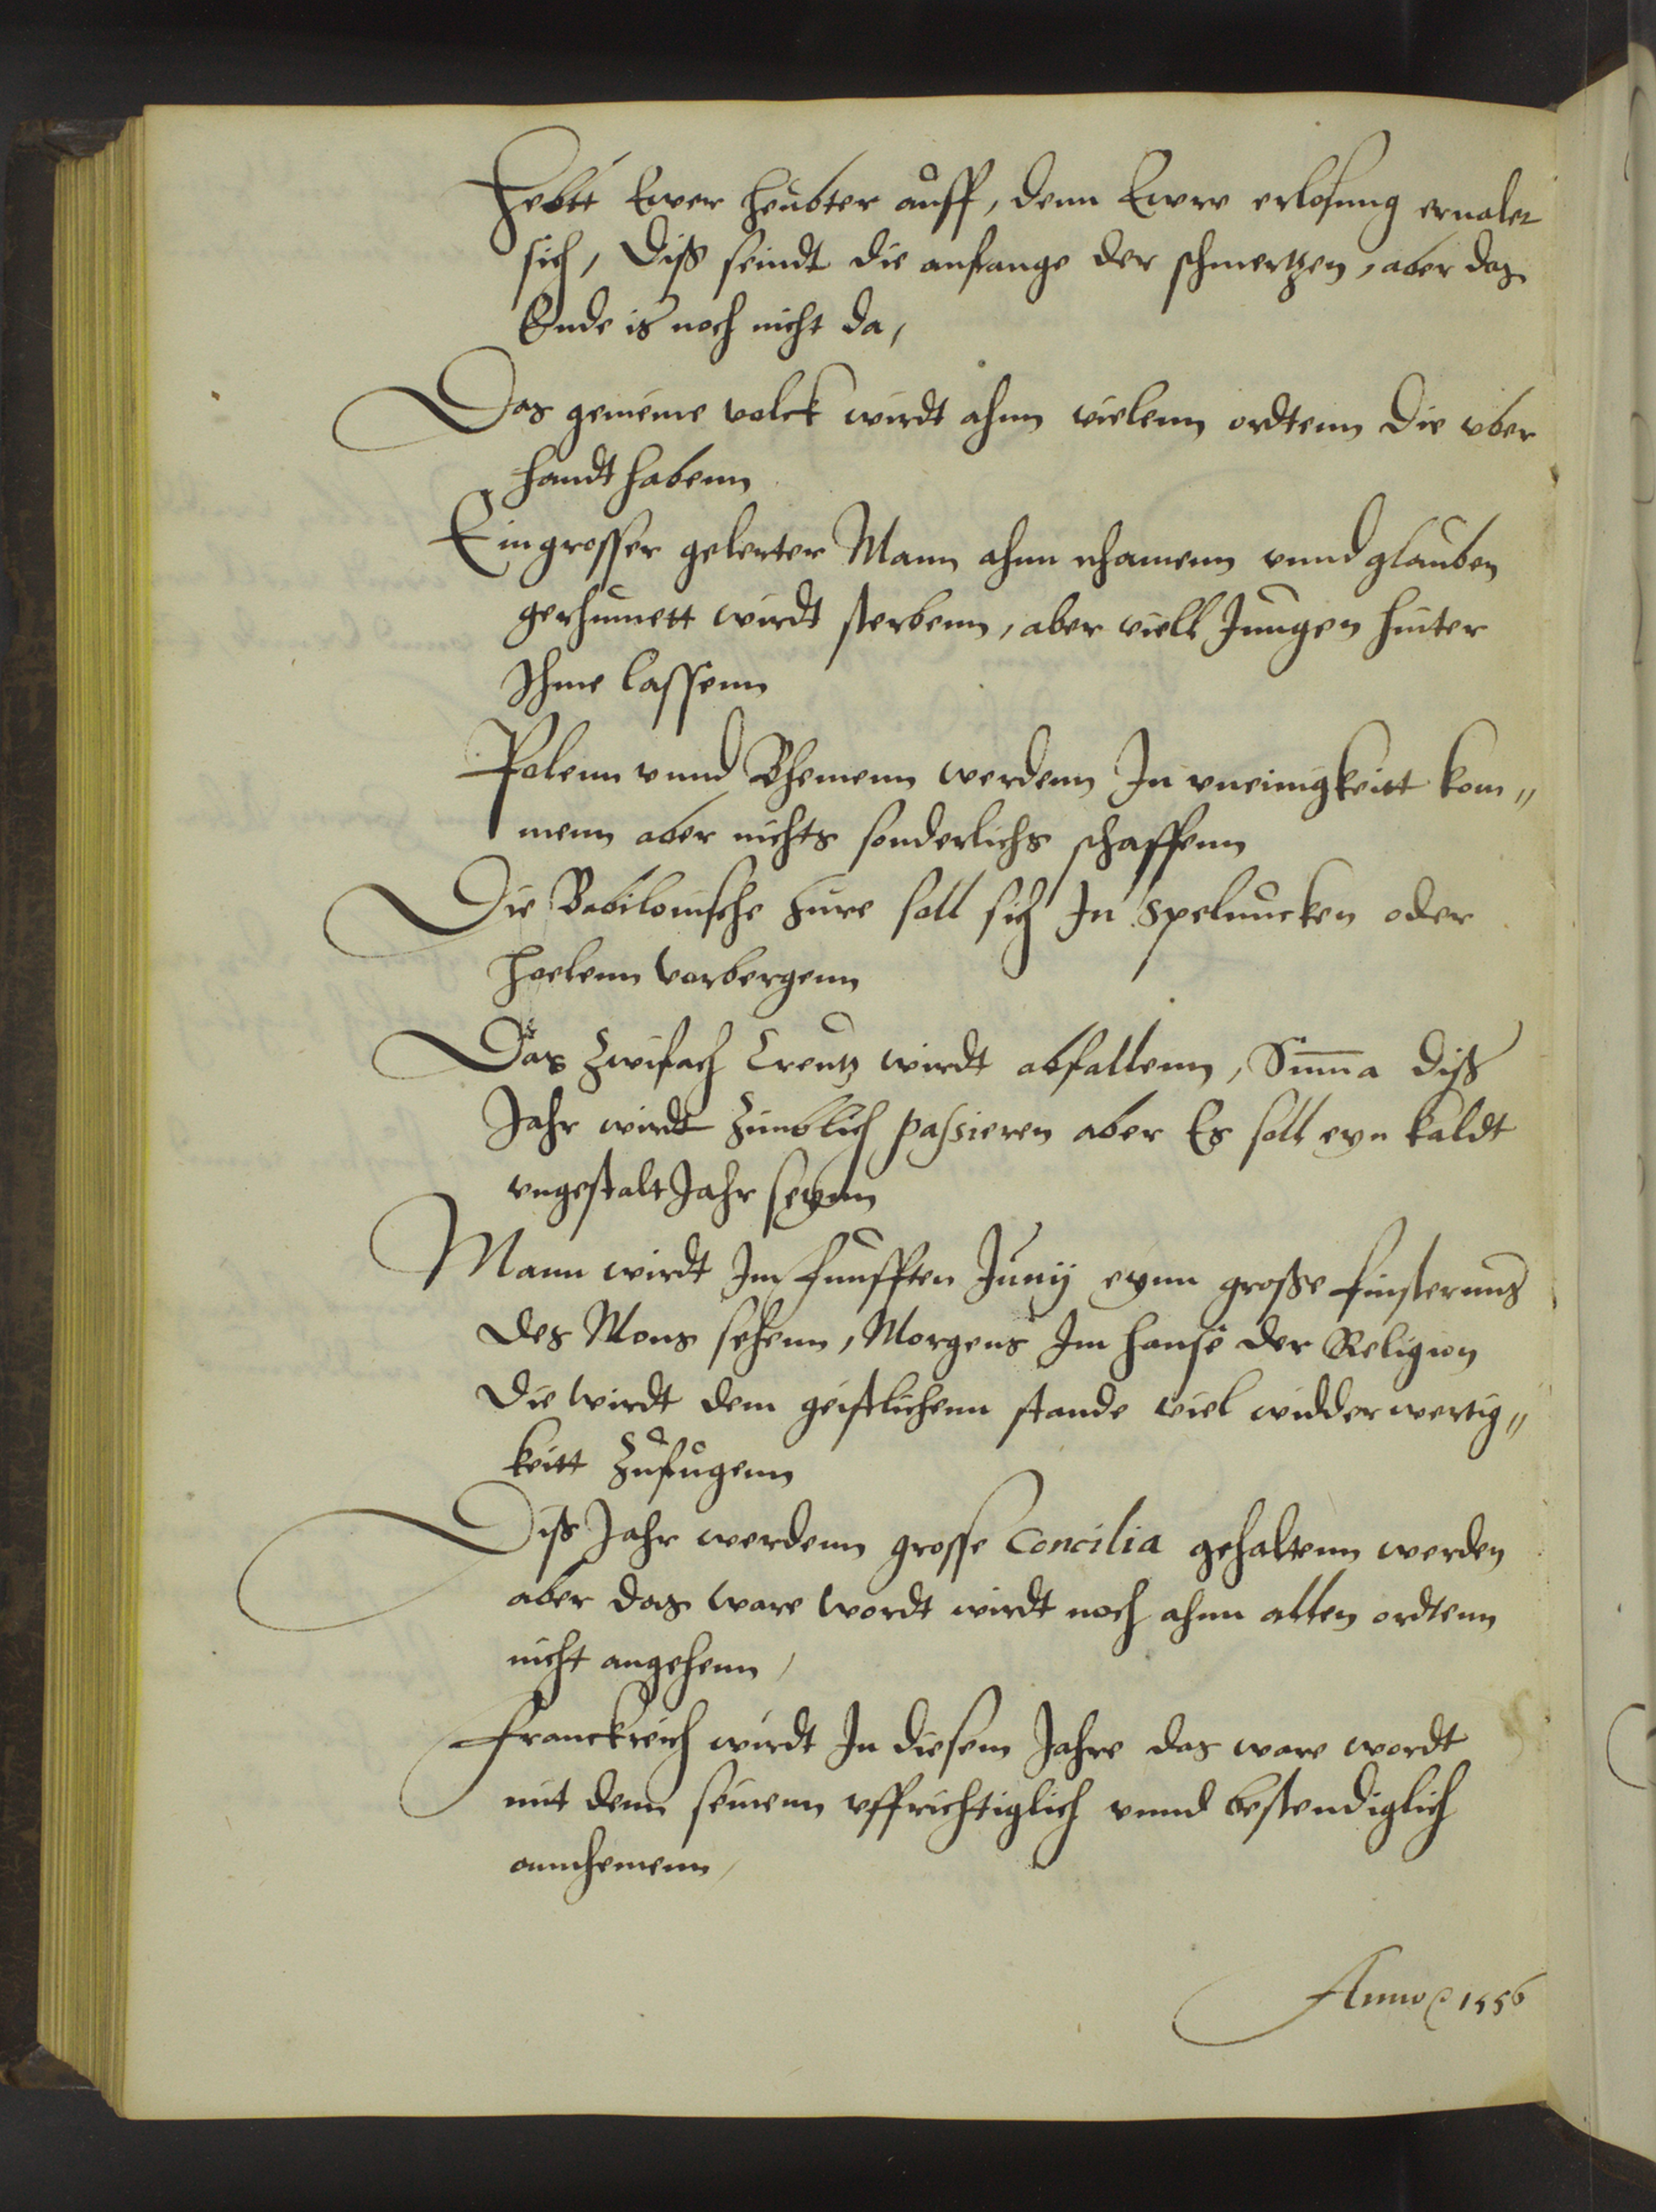 Hebtt Ewer heubter auff, denn Ewre erlosung ernalet
sich, Diß seindt die anfange der schmertzen, aber das
Ende is noch nicht da,
Das gemeine volck wirdt ahnn vielenn ordtenn die vber
handt habenn
Ein grosser gelerter Mann ahnn nhamenn vnnd glauben
gerhumett wirdt sterbenn, aber viell Jungen hinter
Ihme lassenn
Polenn vnnd Bhemenn werdenn In vneinigkeitt kom„
menn aber nichts sonderlichs schaffenn
Die Babilonische Hure soll sich In Speluncken oder
Hoelenn vorbergenn
Das Zwifach Creutz wirdt abfallenn, Summa diß
Jahr wirdt Zimblich passieren aber Es soll eyn kaldt
vngestalt Jahr seynn
Mann wirdt Im funfften Junij eynn große finsternus
des Mons sehenn, Morgens Im hause der Religion
die wirdt dem geistlichenn stande viel widderwertig„
keitt Zufugenn
Diß Jahr werdenn grosse Concilia gehaltenn werden
aber das ware wordt wirdt noch ahnn allen ordtenn
nicht angehenn,
Franckreich wirdt In diesem Jahre das ware wordt
mit denn seinenn vffrichtiglich vnnd bestendiglich
annhemenn,
Anno 1556